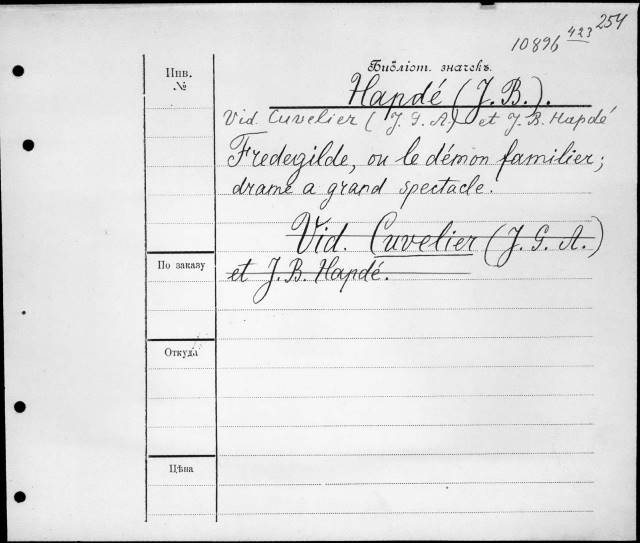 254
10896 423
Инв.
№
Библіот. значекъ.
Hapdé (J. B.).
Vid Cuvelier (J. G. A.) et J. B. Hapdé
Fredegilde, ou le démon familier;
drame a grand spectacle.
Vid. Cuvelier (J. G. A.)
et J. B. Hapdé.
По заказу
Откуда
Цѣна